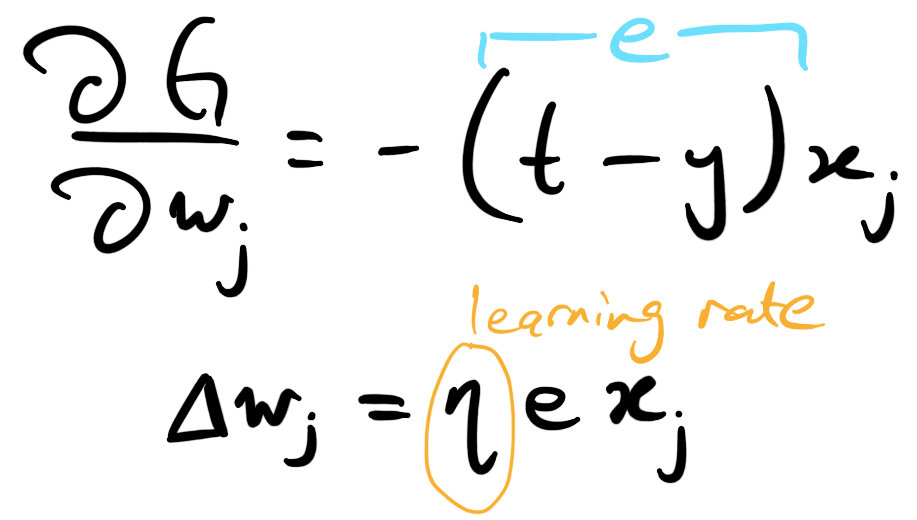 e
∂G/∂w_j = -(t - y)x_j
learning rate
Δw_j = η e x_j